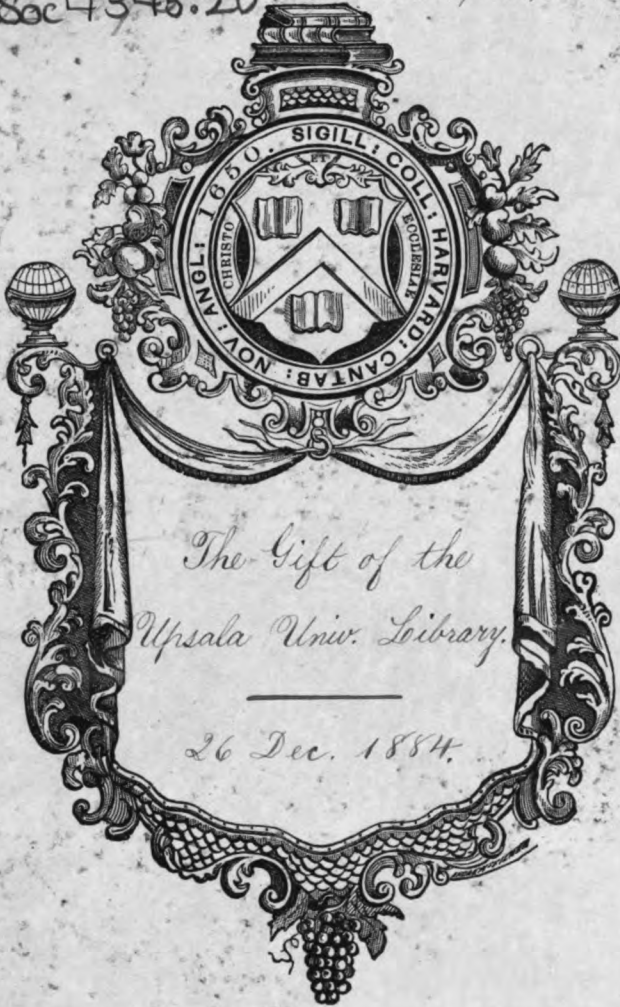 Soc 4345.20
SIGILL: COLL: HARVARD: CANTAB: NOV: ANGL: 1650.
CHRISTO
ET
ECCLESIAE
The Gift of the
Upsala Univ. Library.
26 Dec. 1884.